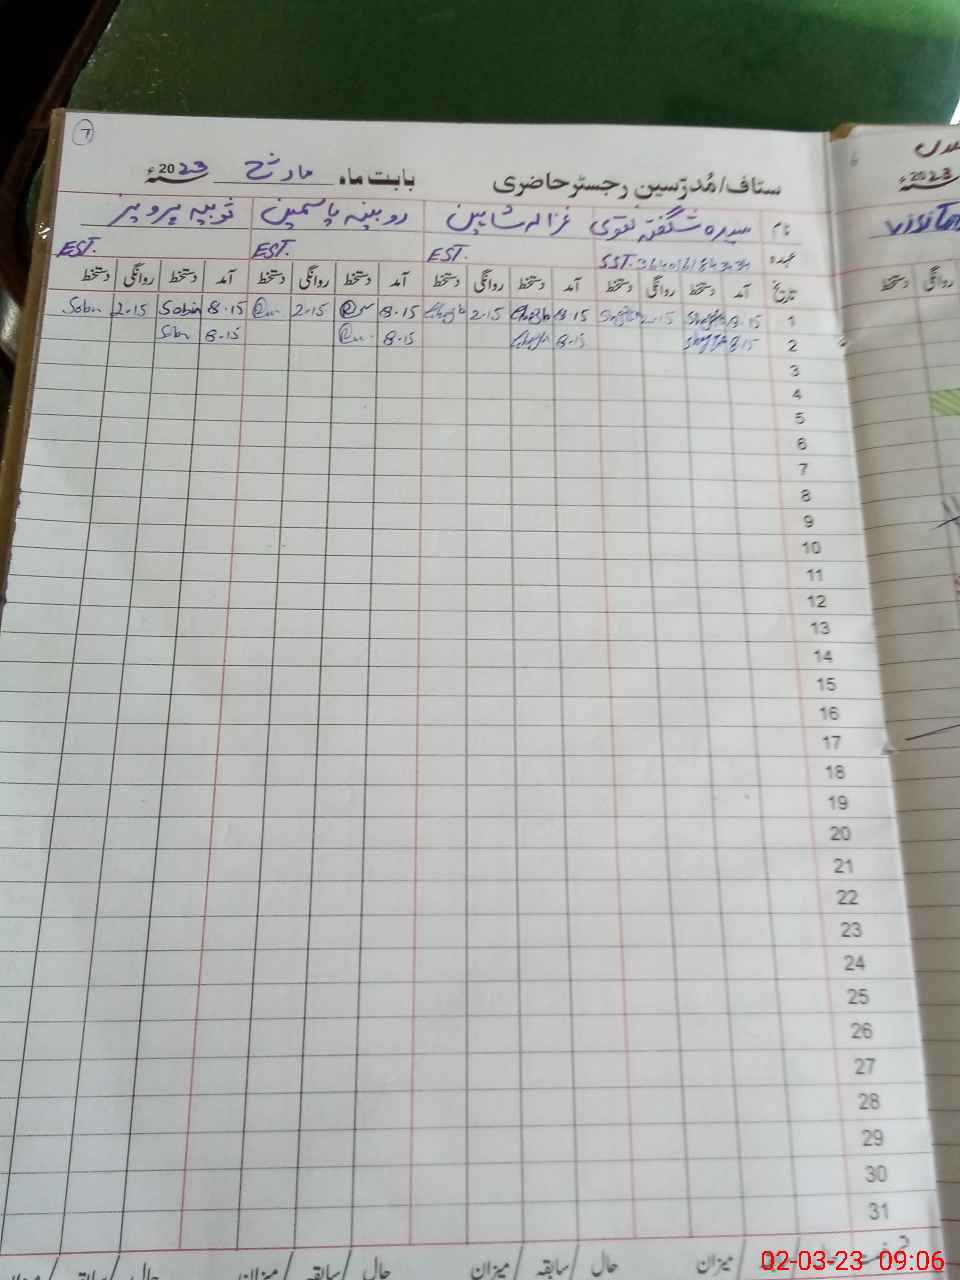 7
ستاف/مُدرّسین رجسٹر حاضری بابت ماہ مارچ 2023ء
نام سیدہ شگفتہ نقوی غزالہ شاہین روبینہ یاسمین ثوبیہ پرویز
عہدہ SST. EST. EST. EST.
تاریخ آمد دستخط روانگی دستخط آمد دستخط روانگی دستخط آمد دستخط روانگی دستخط آمد دستخط روانگی دستخط
1 8.15 2.15 8.15 2.15 8.15 2.15 8.15 2.15
2 8.15 8.15 8.15 8.15
3
4
5
6
7
8
9
10
11
12
13
14
15
16
17
18
19
20
21
22
23
24
25
26
27
28
29
30
31
میزان حال / سابقہ / میزان حال / سابقہ / میزان حال / سابقہ /
6
2023ء
روانگی دستخط
02-03-23 09:06